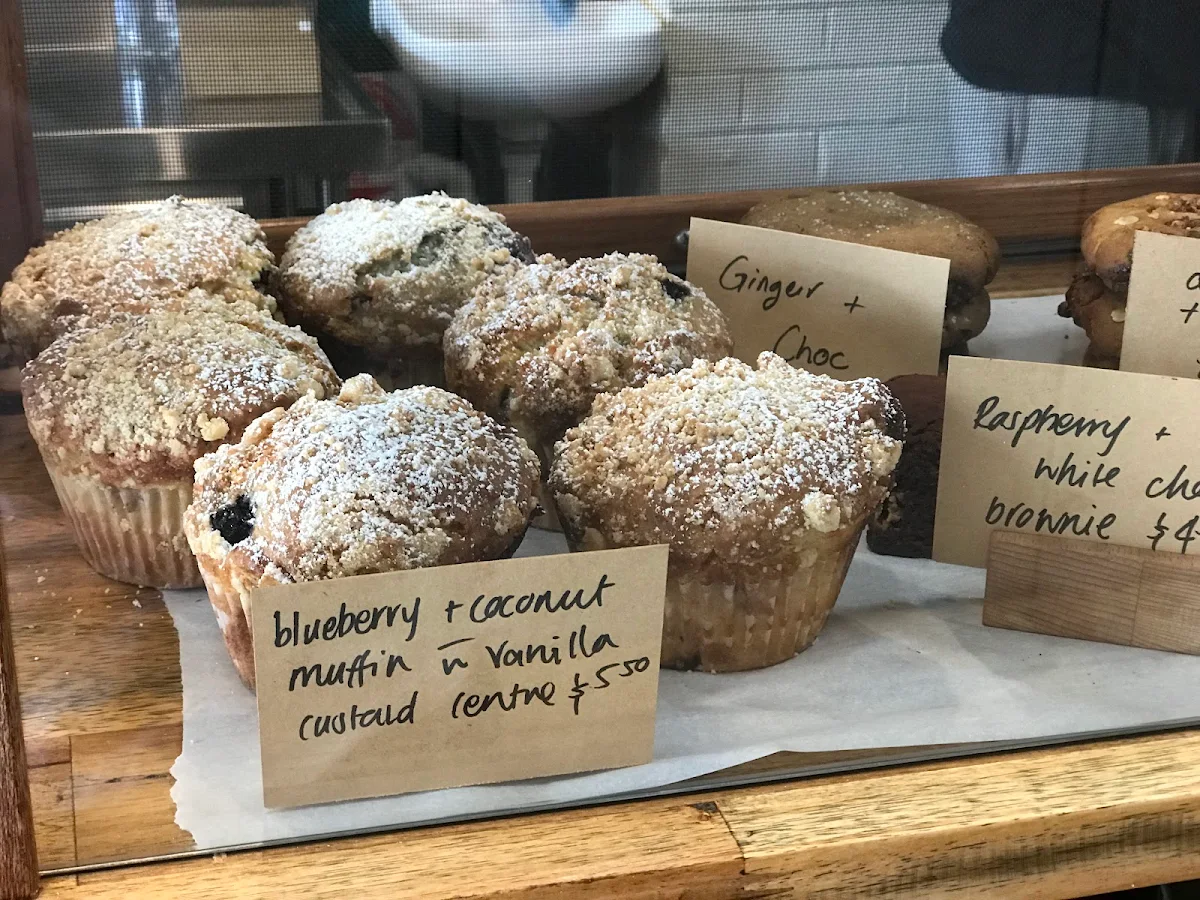 Ginger +
Choc
Raspberry +
white
brownie $4
blueberry + coconut
muffin w vanilla
custard centre $5.50